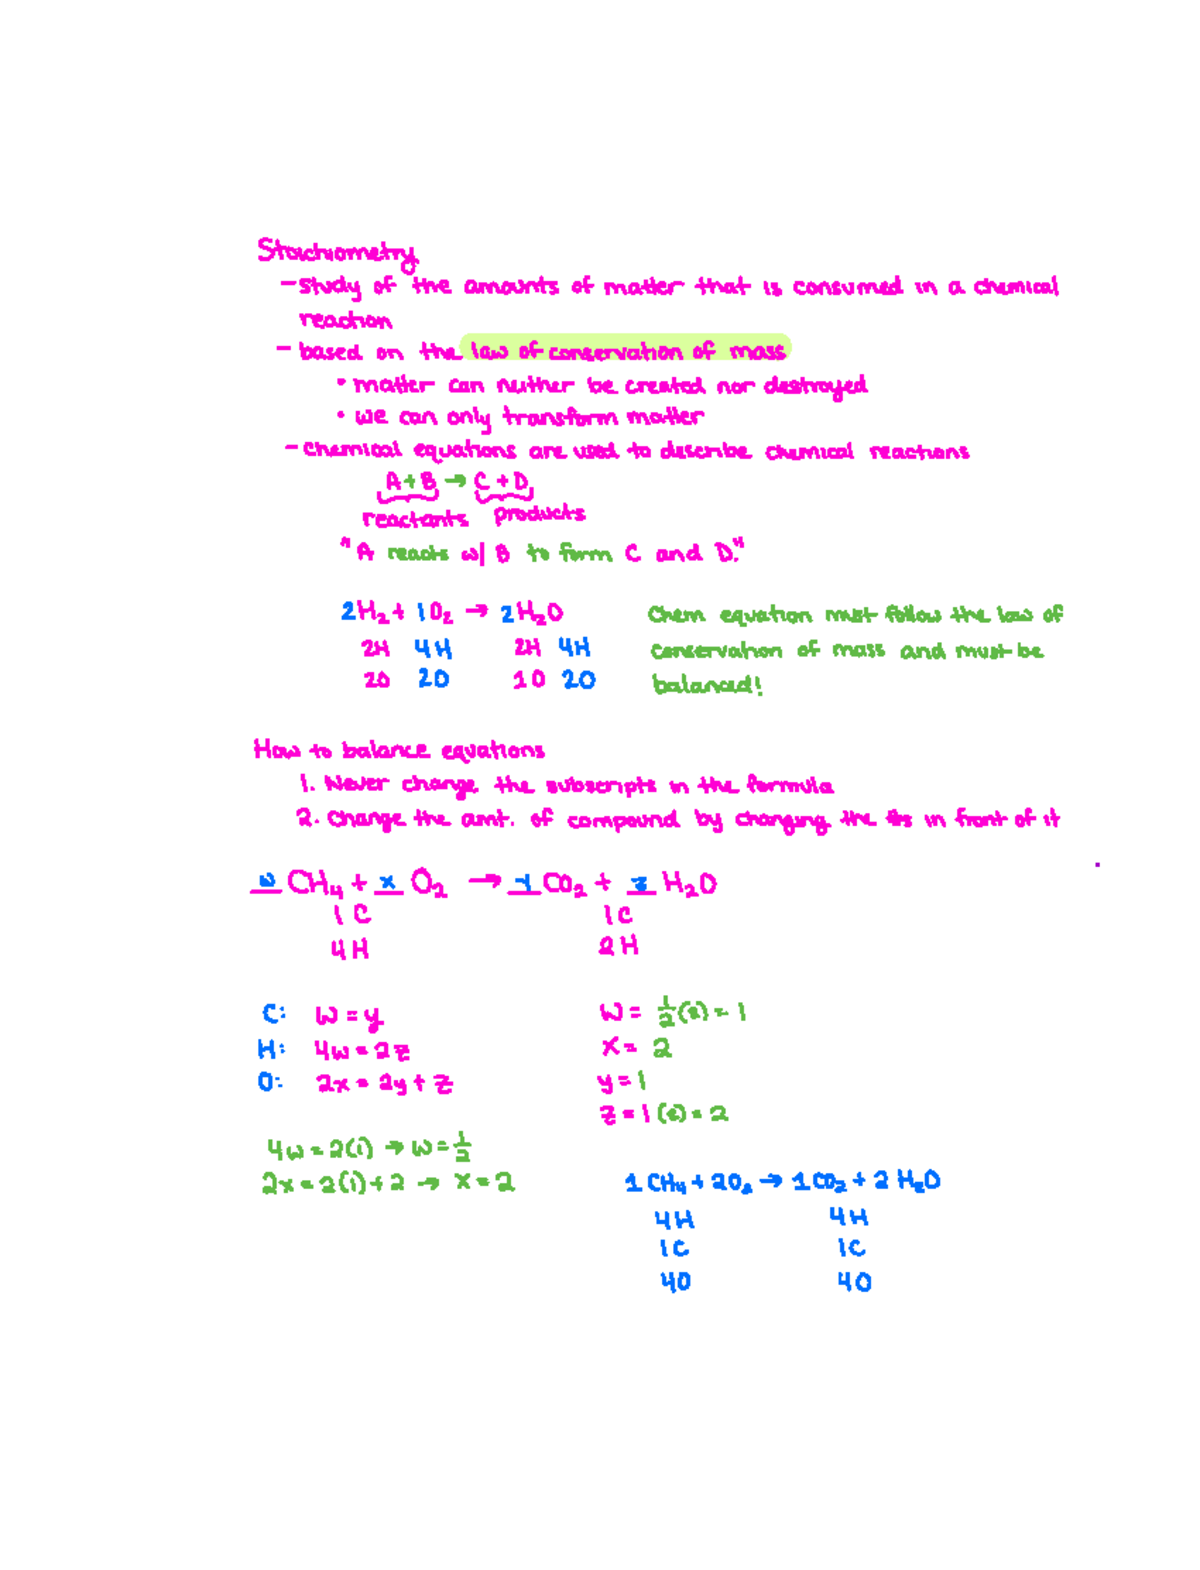 Stoichiometry
- study of the amounts of matter that is consumed in a chemical
reaction
- based on the law of conservation of mass
• matter can neither be created nor destroyed
• we can only transform matter
- chemical equations are used to describe chemical reactions
A + B → C + D
reactants products
"A reacts w/ B to form C and D."
2H₂ + 1O₂ → 2H₂O
2H 4H 2H 4H
2O 2O 1O 2O
Chem equation must follow the law of
conservation of mass and must be
balanced!
How to balance equations
1. Never change the subscripts in the formula
2. Change the amt. of compound by changing the #s in front of it
w CH₄ + x O₂ → y CO₂ + z H₂O
1C 1C
4H 2H
C: w = y
H: 4w = 2z
O: 2x = 2y + z
w = ½(2) = 1
x = 2
y = 1
z = 1(2) = 2
4w = 2(1) → w = ½
2x = 2(1) + 2 → x = 2
1CH₄ + 2O₂ → 1CO₂ + 2H₂O
4H 4H
1C 1C
4O 4O